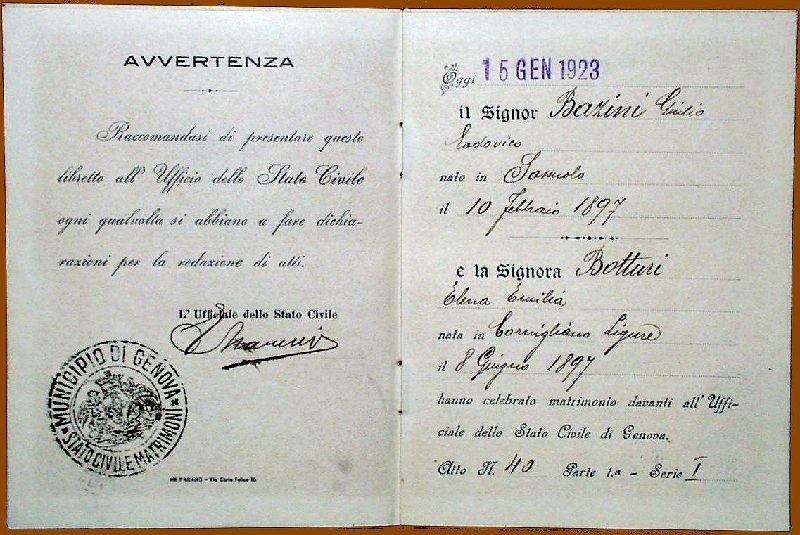 AVVERTENZA
Raccomandasi di presentare questo
libretto all' Ufficio dello Stato Civile
ogni qualvolta si abbiano a fare dichia-
razioni per la redazione di atti.
L' Ufficiale dello Stato Civile
MUNICIPIO DI GENOVA
STATO CIVILE MATRIMONI
PAGANO - Via Carlo Felice
Oggi 15 GEN 1923
il Signor Bazini Giulio
Lodovico
nato in Sassuolo
il 10 febbraio 1897
e la Signora Botturi
Elena Emilia
nata in Cornigliano Ligure
il 8 Giugno 1897
hanno celebrato matrimonio davanti all' Uffi-
ciale dello Stato Civile di Genova.
Atto N. 40 Parte 1.a - Serie I